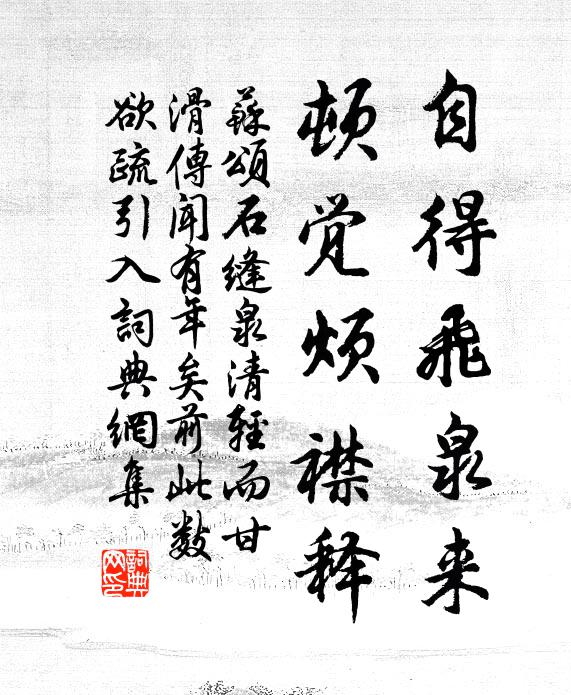 自得飛泉来
頓觉煩襟釋
蘇頌石縫泉清輕而甘
滑傳聞有年矣前此数
欲疏引入詞典網集
詞典
网印